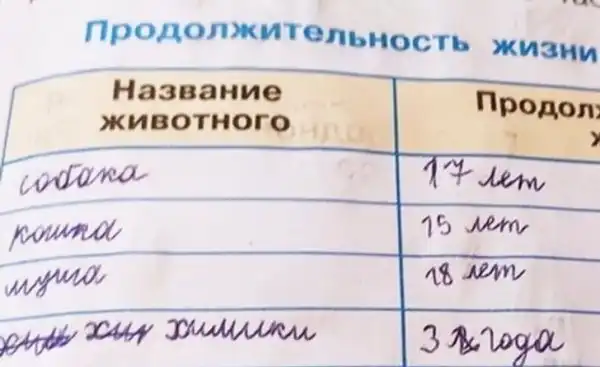 Продолжительность жизни
Название
животного
Продол
собака
17 лет
кошка
15 лет
муша
18 лет
химики
3 года